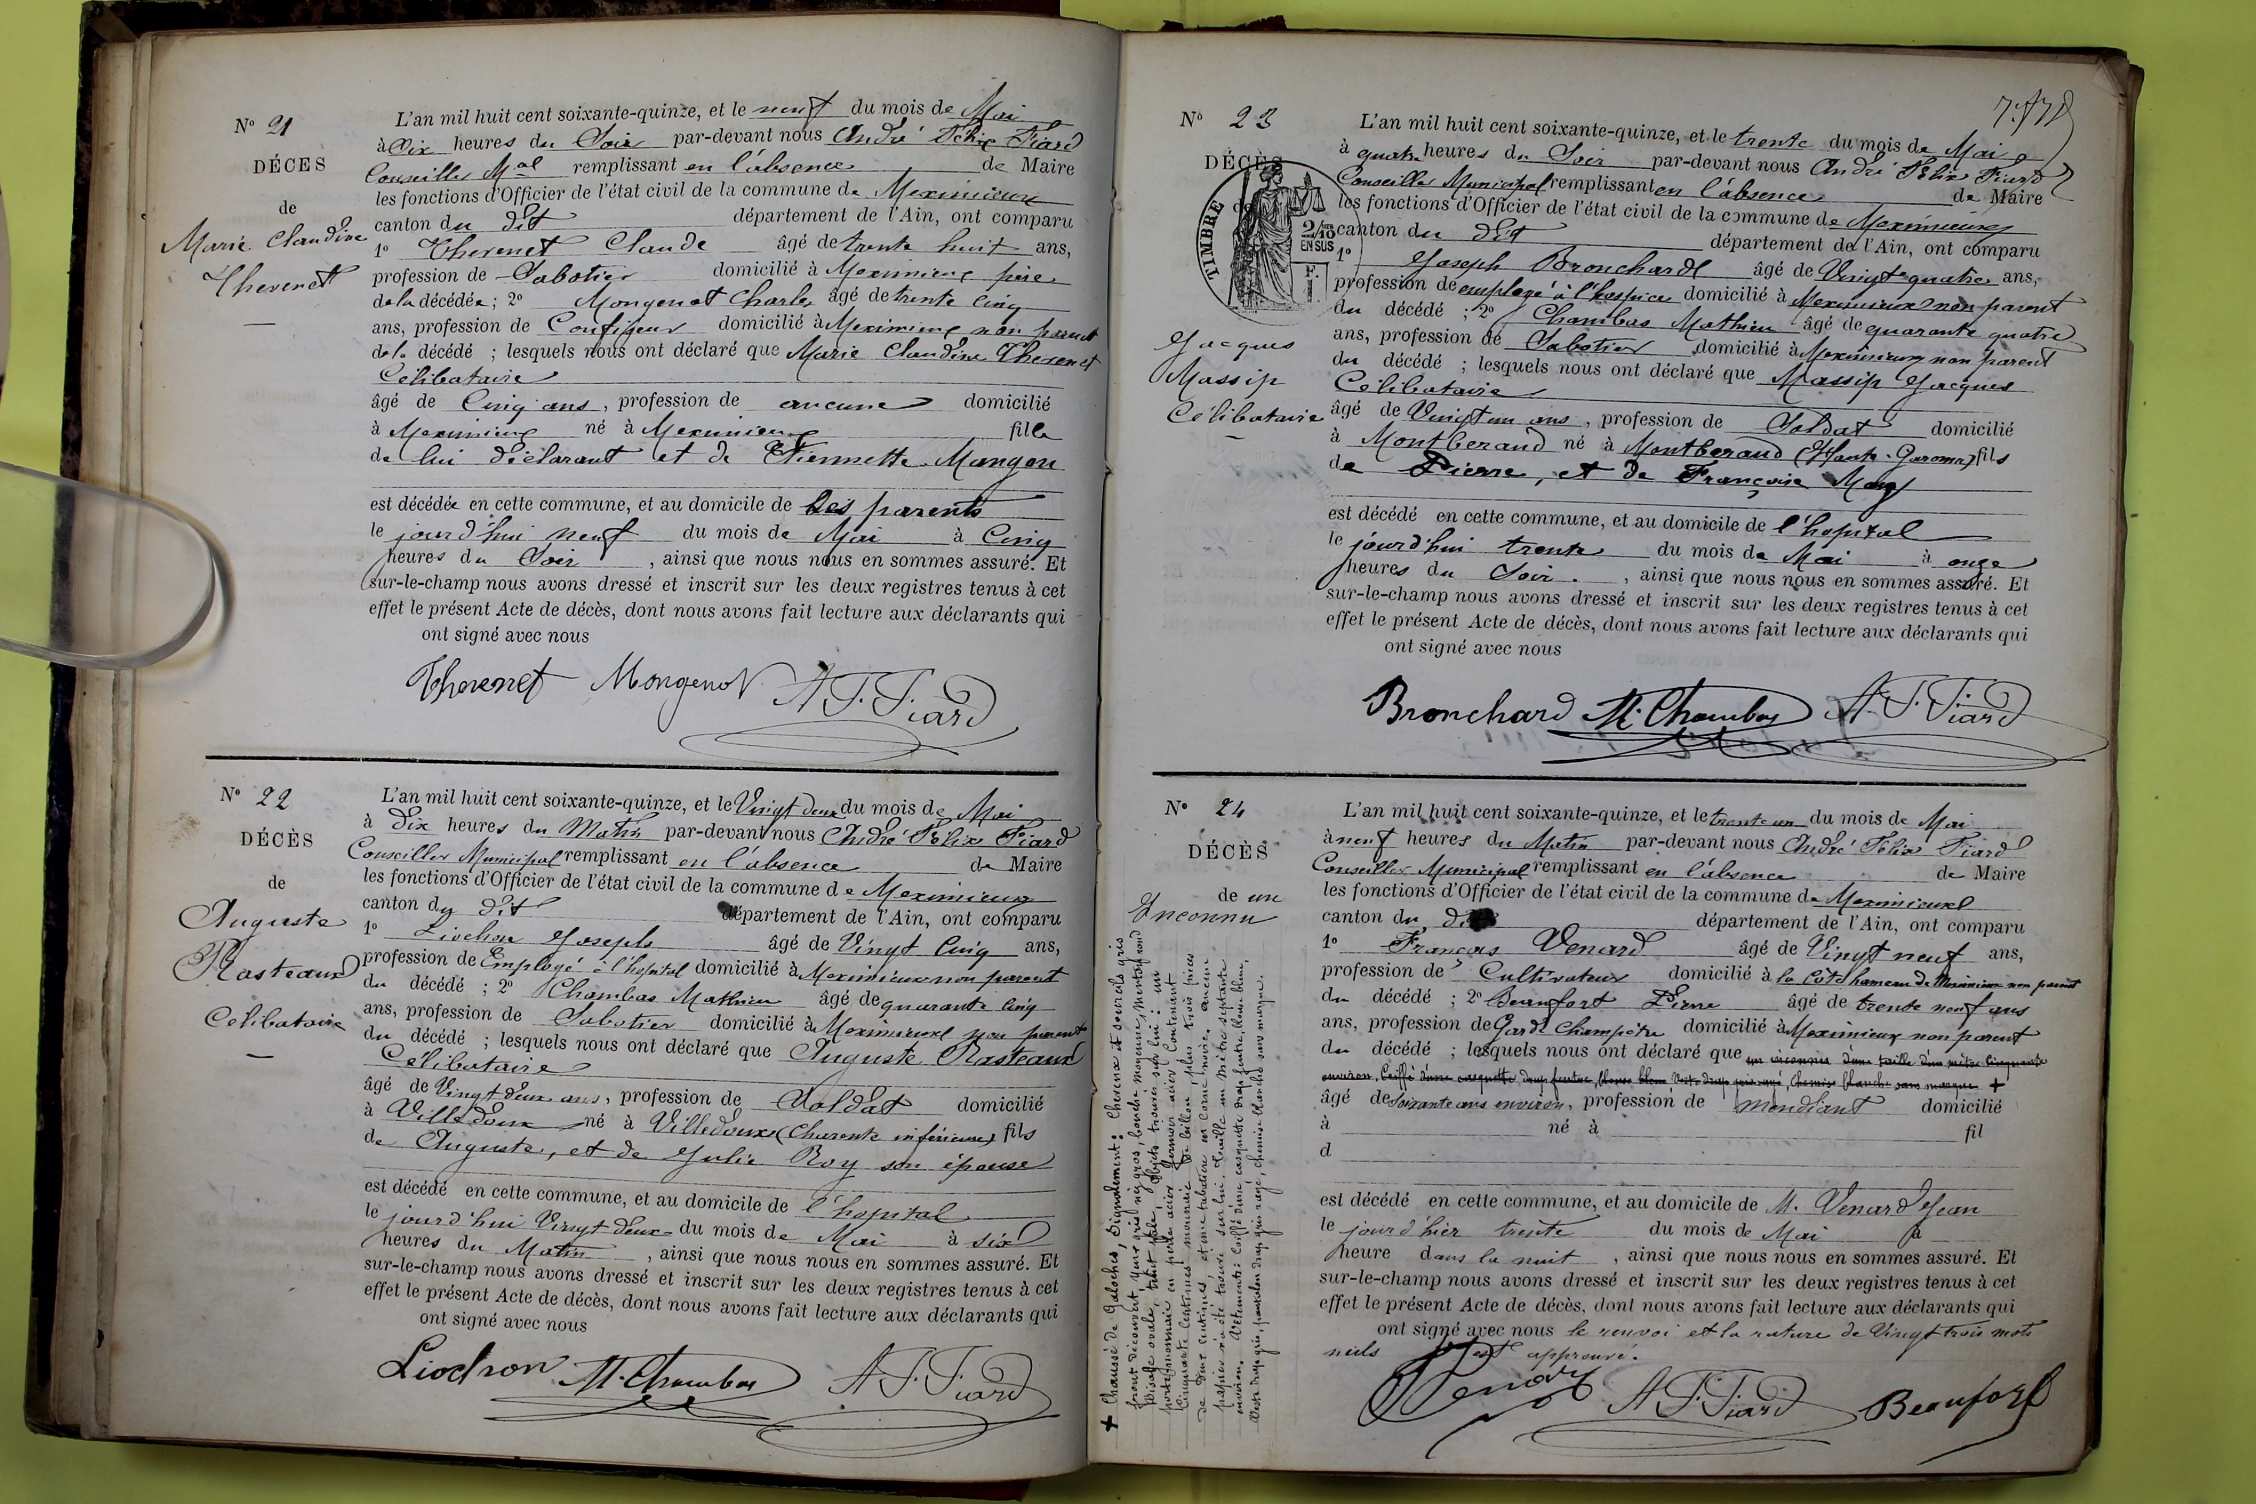 N° 21
DÉCES
de
Marie Claudine
Thevenet
L'an mil huit cent soixante-quinze, et le neuf du mois de Mai
à Six heures du Soir par-devant nous André Félix Fiard
Conseiller Mal remplissant en l'absence de Maire
les fonctions d'Officier de l'état civil de la commune de Meximieux
canton du dit département de l'Ain, ont comparu
1° Thevenet Claude âgé de trente huit ans,
profession de Sabotier domicilié à Meximieux père
de la décédée ; 2° Mongenot Charles âgé de trente cinq
ans, profession de Confiseur domicilié à Meximieux non parent
de la décédé ; lesquels nous ont déclaré que Marie Claudine Thevenet
Célibataire
âgé de Cinq ans, profession de aucune domicilié
à Meximieux né à Meximieux fille
de lui déclarant et de Etiennette Mangon
est décédée en cette commune, et au domicile de Ses parents
le jourd'hui neuf du mois de Mai à Cinq
heures du Soir, ainsi que nous nous en sommes assuré. Et
sur-le-champ nous avons dressé et inscrit sur les deux registres tenus à cet
effet le présent Acte de décès, dont nous avons fait lecture aux déclarants qui
ont signé avec nous
Thevenet Mongenot A. F. Fiard
N° 22
DÉCÈS
de
Auguste
Rasteaud
Célibataire
L'an mil huit cent soixante-quinze, et le Vingt deux du mois de Mai
à Dix heures du Matin par-devant nous André Félix Fiard
Conseiller Municipal remplissant en l'absence de Maire
les fonctions d'Officier de l'état civil de la commune de Meximieux
canton du dit département de l'Ain, ont comparu
1° Liochon Joseph âgé de Vingt Cinq ans,
profession de Employé à l'hopital domicilié à Meximieux non parent
du décédé ; 2° Chambas Mathieu âgé de quarante cinq
ans, profession de Sabotier domicilié à Meximieux non parent
du décédé ; lesquels nous ont déclaré que Auguste Rasteaud
Célibataire
âgé de Vingt deux ans, profession de Soldat domicilié
à Villedoux né à Villedoux (Charente inférieure) fils
de Auguste, et de Julie Roy son épouse
est décédé en cette commune, et au domicile de l'hopital
le jourd'hui Vingt deux du mois de Mai à six
heures du Matin, ainsi que nous nous en sommes assuré. Et
sur-le-champ nous avons dressé et inscrit sur les deux registres tenus à cet
effet le présent Acte de décès, dont nous avons fait lecture aux déclarants qui
ont signé avec nous
Liochon M. Chambas A. F. Fiard
N° 23
DÉCÈS
de
TIMBRE
2/10
EN SUS
Jacques
Massip
Célibataire
L'an mil huit cent soixante-quinze, et le trente du mois de Mai
à quatre heures du Soir par-devant nous André Félix Fiard
Conseiller Municipal remplissant en l'absence de Maire
les fonctions d'Officier de l'état civil de la commune de Meximieux
canton du dit département de l'Ain, ont comparu
1° Joseph Bronchard âgé de Vingt quatre ans,
profession de employé à l'hospice domicilié à Meximieux non parent
du décédé ; 2° Chambas Mathieu âgé de quarante quatre
ans, profession de Sabotier domicilié à Meximieux non parent
du décédé ; lesquels nous ont déclaré que Massip Jacques
Célibataire
âgé de Vingt un ans, profession de Soldat domicilié
à Montberaud né à Montberaud (Haute-Garonne) fils
de Pierre, et de Françoise
est décédé en cette commune, et au domicile de l'hopital
le jourd'hui trente du mois de Mai à onze
heures du Soir, ainsi que nous nous en sommes assuré. Et
sur-le-champ nous avons dressé et inscrit sur les deux registres tenus à cet
effet le présent Acte de décès, dont nous avons fait lecture aux déclarants qui
ont signé avec nous
Bronchard M. Chambas A. F. Fiard
N° 24
DÉCÈS
de un
Inconnu
L'an mil huit cent soixante-quinze, et le trente un du mois de Mai
à neuf heures du Matin par-devant nous André Félix Fiard
Conseiller Municipal remplissant en l'absence de Maire
les fonctions d'Officier de l'état civil de la commune de Meximieux
canton du dit département de l'Ain, ont comparu
1° François Venard âgé de Vingt neuf ans,
profession de Cultivateur domicilié à la Côte hameau de Meximieux non parent
du décédé ; 2° Beaufort Pierre âgé de trente neuf ans
ans, profession de Garde Champêtre domicilié à Meximieux non parent
du décédé ; lesquels nous ont déclaré que un inconnu d'une taille d'un mètre cinquante
environ, Coiffé d'une casquette drap feutre, blouse bleue Veste drap gris rayé, Chemise blanche sans marque +
âgé de Soixante ans environ, profession de mendiant domicilié
à né à fil
d
est décédé en cette commune, et au domicile de M. Venard Jean
le jour d'hier trente du mois de Mai à
heure dans la nuit, ainsi que nous nous en sommes assuré. Et
sur-le-champ nous avons dressé et inscrit sur les deux registres tenus à cet
effet le présent Acte de décès, dont nous avons fait lecture aux déclarants qui
ont signé avec nous le renvoi et la rature de Vingt trois mots
nuls est approuvé.
A. F. Fiard Beaufort
+ Chaussé de Galoches, Signalement : Cheveux et sourcils gris
front découvert, yeux gris, nez gros, bouche moyenne, menton rond
Visage ovale, teint pale, objets trouvés sur lui : un
portemonnaie en perles acier fermoir acier Contenant
Cinquante Centimes monnaie de billon, plus trois pièces
de deux centimes et une tabatière en Corne noire, aucun
papier n'a été trouvé sur lui, taille un mètre septante
environ. Vêtements : Coiffé d'une casquette drap feutre, blouse bleue,
Veste drap gris, pantalon drap gris rayé, chemise blanche sans marque.